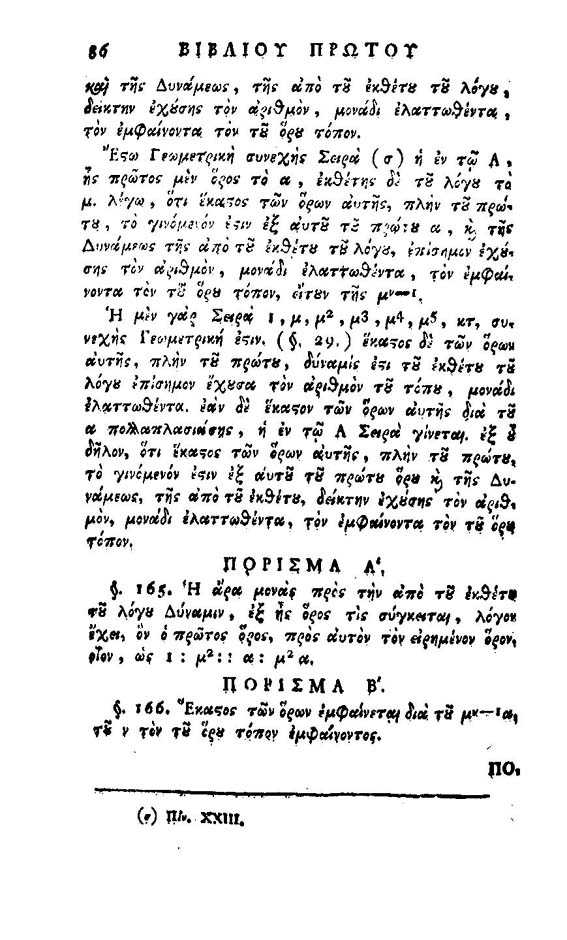 86 ΒΙΒΛΙΟΥ ΠΡΩΤΟΥ
καὶ τῆς Δυνάμεως, τῆς ἀπὸ τȣ͂ ἐκθέτȣ τȣ͂ λόγȣ,
δείκτην ἐχȣ́σης τὸν ἀριθμὸν, μονάδι ἐλαττωθέντα,
τὸν ἐμφαίνοντα τὸν τȣ͂ ὅρȣ τόπον.
Ἔϛω Γεωμετρικὴ συνεχὴς Σειρὰ (σ) ἡ ἐν τῷ Α,
ἧς πρῶτος μὲν ὅρος τὸ α, ἐκθέτης δὲ τȣ͂ λόγȣ τὸ
μ. λέγω, ὅτι ἕκαϛος τῶν ὅρων αὐτῆς, πλὴν τȣ͂ πρώ-
τȣ, τὸ γινόμενόν ἐϛιν ἐξ αὐτȣ͂ τȣ͂ πρώτȣ α, ϗ τῆς
Δυνάμεως τῆς ἀπὸ τȣ͂ ἐκθέτȣ τȣ͂ λόγȣ, ἐπίσημον ἐχȣ́-
σης τὸν ἀριθμὸν, μονάδι ἐλαττωθέντα, τὸν ἐμφαί-
νοντα τὸν τȣ͂ ὅρȣ τόπον, εἴτȣν τῆς μ^ν—1.
Ἡ μὲν γὰρ Σειρὰ 1, μ, μ², μ3, μ⁴, μ⁵, κτ, συ-
νεχὴς Γεωμετρική ἐϛιν. (§. 29.) ἕκαϛος δὲ τῶν ὅρων
αὐτῆς, πλὴν τȣ͂ πρώτȣ, δύναμίς ἐϛι τȣ͂ ἐκθέτȣ τȣ͂
λόγȣ ἐπίσημον ἔχȣσα τὸν ἀριθμὸν τȣ͂ τόπȣ, μονάδι
ἐλαττωθέντα. ἐὰν δὲ ἕκαϛον τῶν ὅρων αὐτῆς διὰ τȣ͂
α πολλαπλασιάσῃς, ἡ ἐν τῷ Α Σειρὰ γίνεται. ἐξ ȣ͗͂
δῆλον, ὅτι ἕκαϛος τῶν ὅρων αὐτῆς, πλὴν τȣ͂ πρώτȣ,
τὸ γινόμενόν ἐϛιν ἐξ αὐτȣ͂ τȣ͂ πρώτȣ ὅρȣ ϗ τῆς Δυ-
νάμεως, τῆς ἀπὸ τȣ͂ ἐκθέτȣ, δείκτην ἐχȣ́σης τὸν ἀριθ-
μὸν, μονάδι ἐλαττωθέντα, τὸν ἐμφαίνοντα τὸν τȣ͂ ὅρȣ
τόπον.
ΠΟΡΙΣΜΑ Α΄.
§. 165. Ἡ ἄρα μονὰς πρὸς τὴν ἀπὸ τȣ͂ ἐκθέτȣ
τȣ͂ λόγȣ Δύναμιν, ἐξ ἧς ὅρος τὶς σύγκειται, λόγον
ἔχει, ὃν ὁ πρῶτος ὅρος, πρὸς αὐτὸν τὸν εἰρημένον ὅρον,
οἷον, ὡς 1 : μ² :: α : μ²α.
ΠΟΡΙΣΜΑ Β΄.
§. 166. Ἕκαϛος τῶν ὅρων ἐμφαίνεται διὰ τȣ͂ μ^ν—1α,
τȣ͂ ν τὸν τȣ͂ ὅρȣ τόπον ἐμφαίνοντος.
ΠΟ-
(σ) Πίν. XXIII.